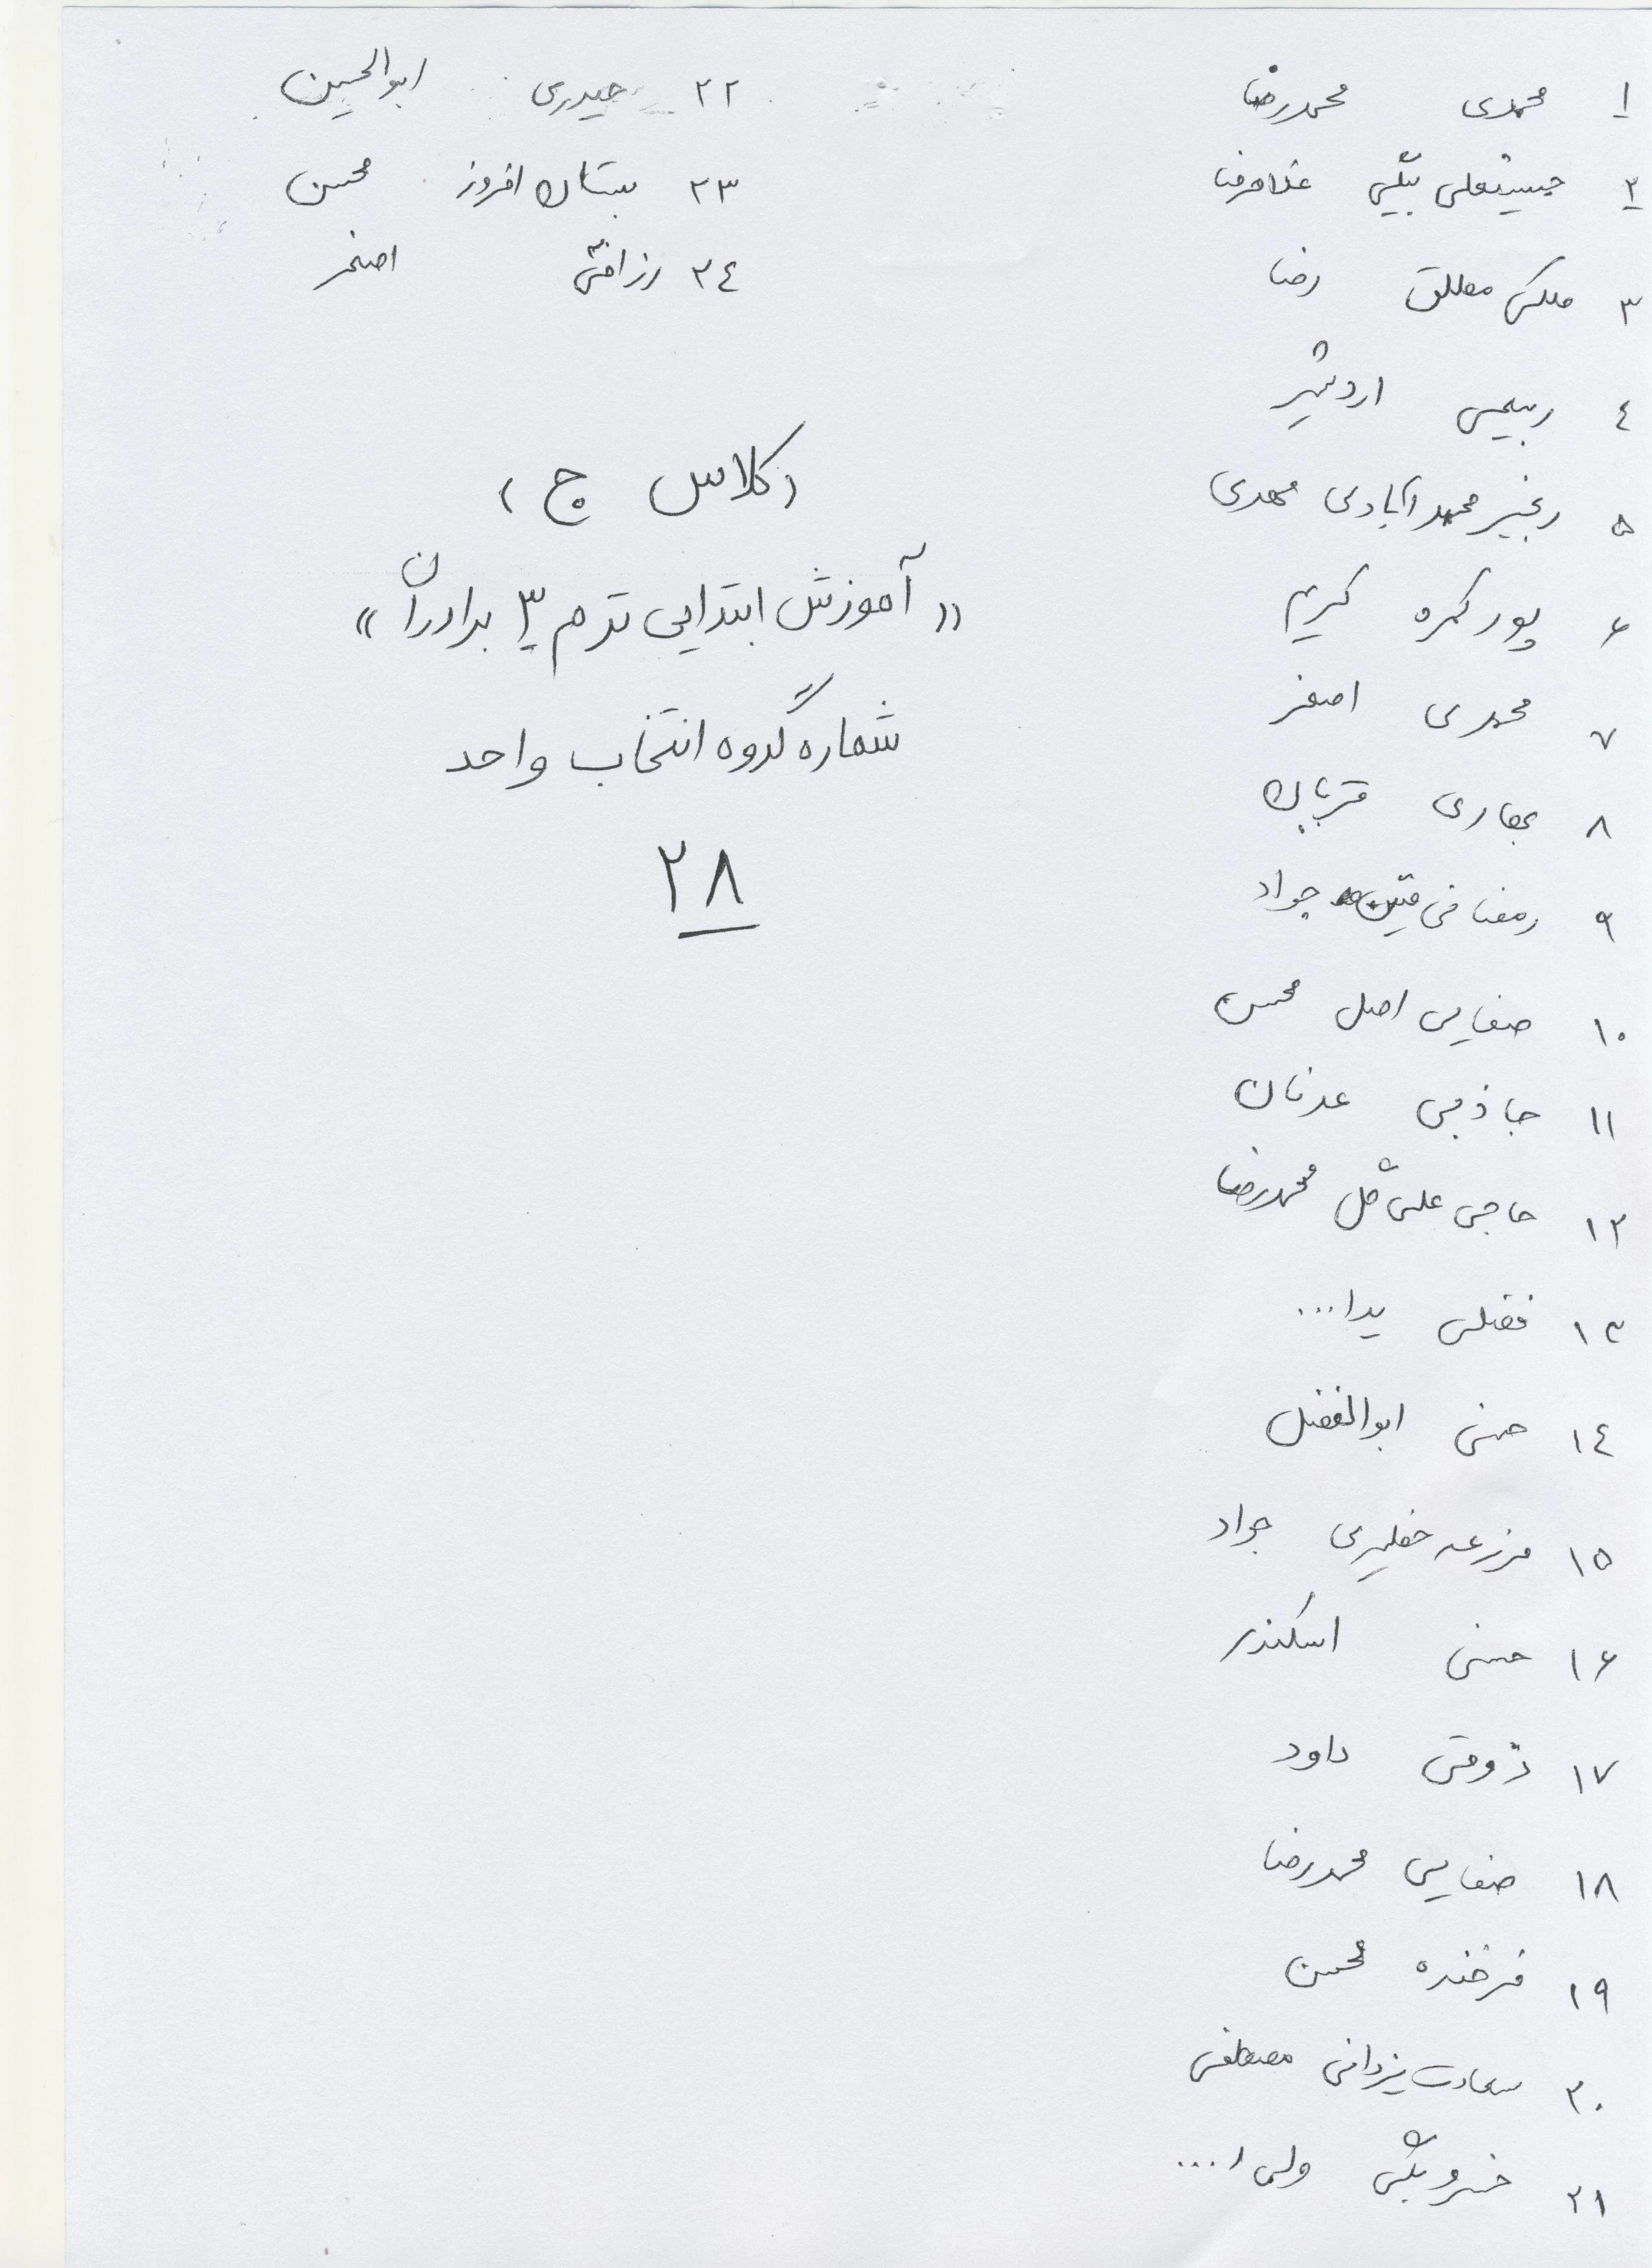 ۱ محمدی محمدرضا
۲ حسینقلی بیگی غلامرضا
۳ ملکی مطلق رضا
٤ ربیعی اردشیر
۵ رنجبر محمدآبادی مهدی
۶ پورکمره کریم
۷ محمدی اصغر
۸ قربان
۹ رمضانی متین جواد
۱۰ صفایی اصل محسن
۱۱ جاذبی عدنان
۱۲ حاجی علی گل محمدرضا
۱۳ فضلی یدا...
۱٤ حسنی ابوالفضل
۱۵ مزرعه خطیری جواد
۱۶ حسنی اسکندر
۱۷ ذوقی داود
۱۸ صفایی محمدرضا
۱۹ فرخنده محسن
۲۰ سعادت یزدانی مصطفی
۲۱ خسروبگی ولی ا...
۲۲ حیدری ابوالحسین
۲۳ بستان افروز محسن
۲٤ رزاقی اصغر
(کلاس ج)
«آموزش ابتدایی ترم ۳ برادران»
شماره گروه انتخاب واحد
۲۸